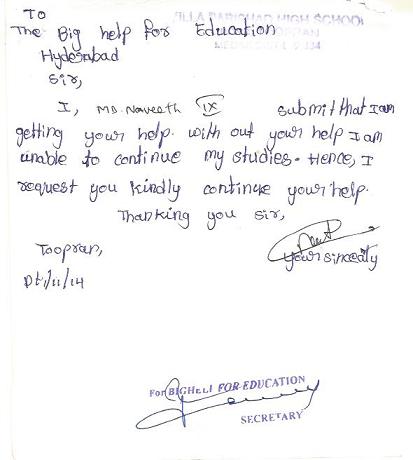 To
ZILLA PARISHAD HIGH SCHOOL
The Big help for Education
Hyderabad
Sir,
I, MD. Naveeth IX submit that I am
getting your help. with out your help I am
unable to continue my studies. Hence, I
request you kindly continue your help.
Thanking you sir,
Toopran,
your sincealy
Dt 1/11/14
For BIGHELP FOR EDUCATION
SECRETARY